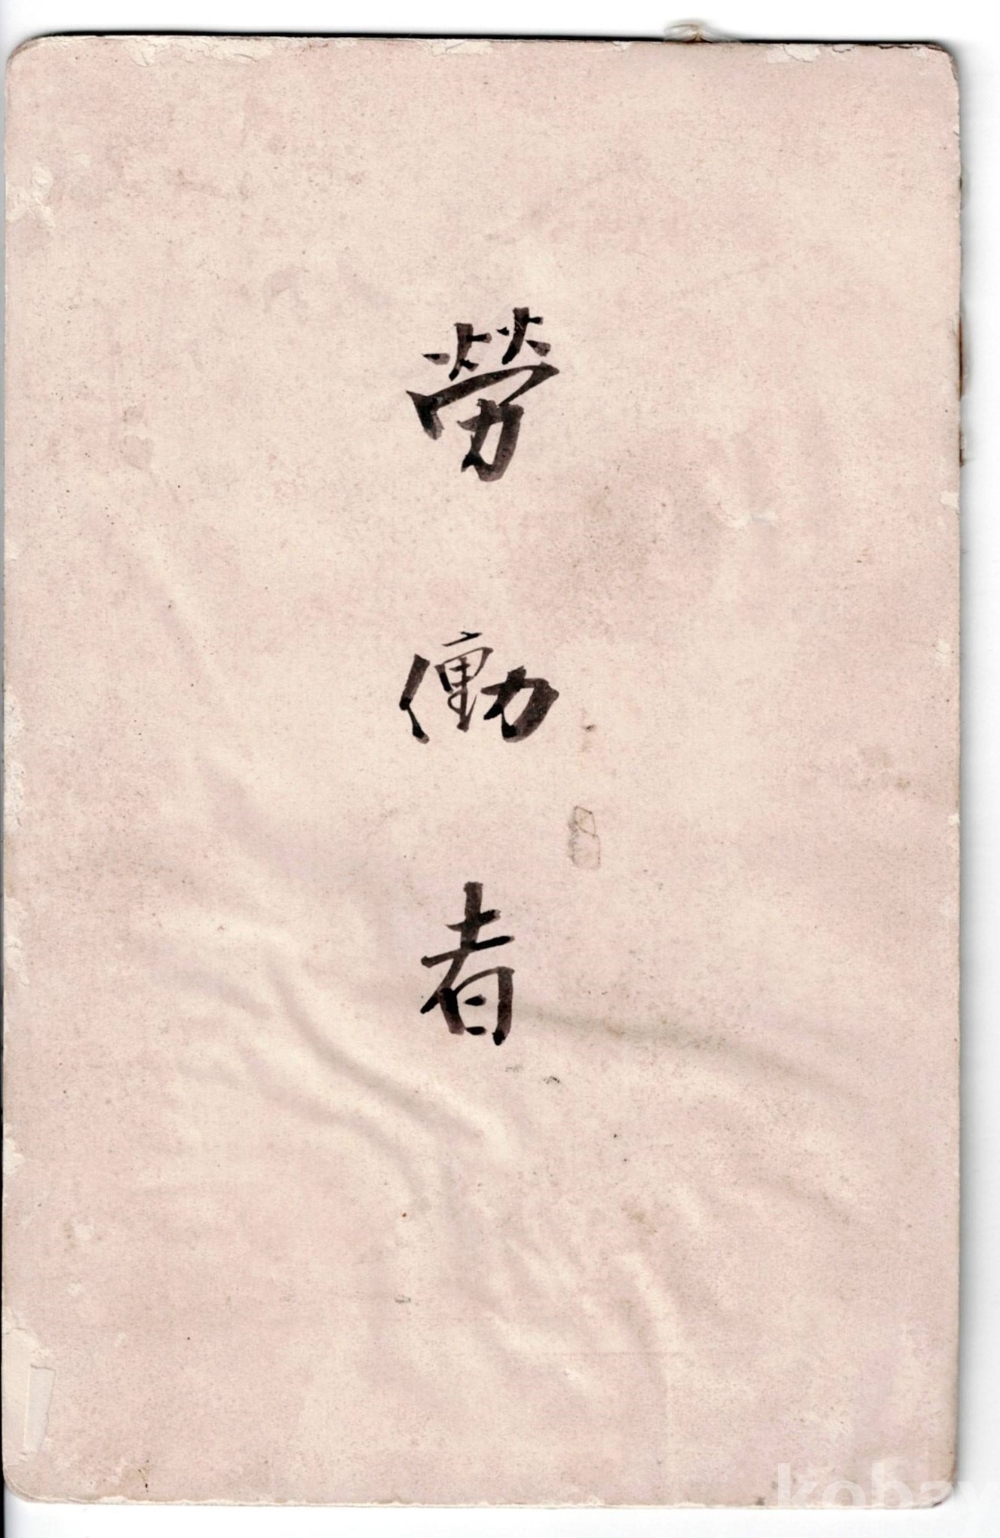 勞働者
kobay